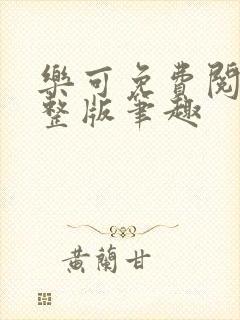 樂可免費閱
整版筆趣
黃蘭甘